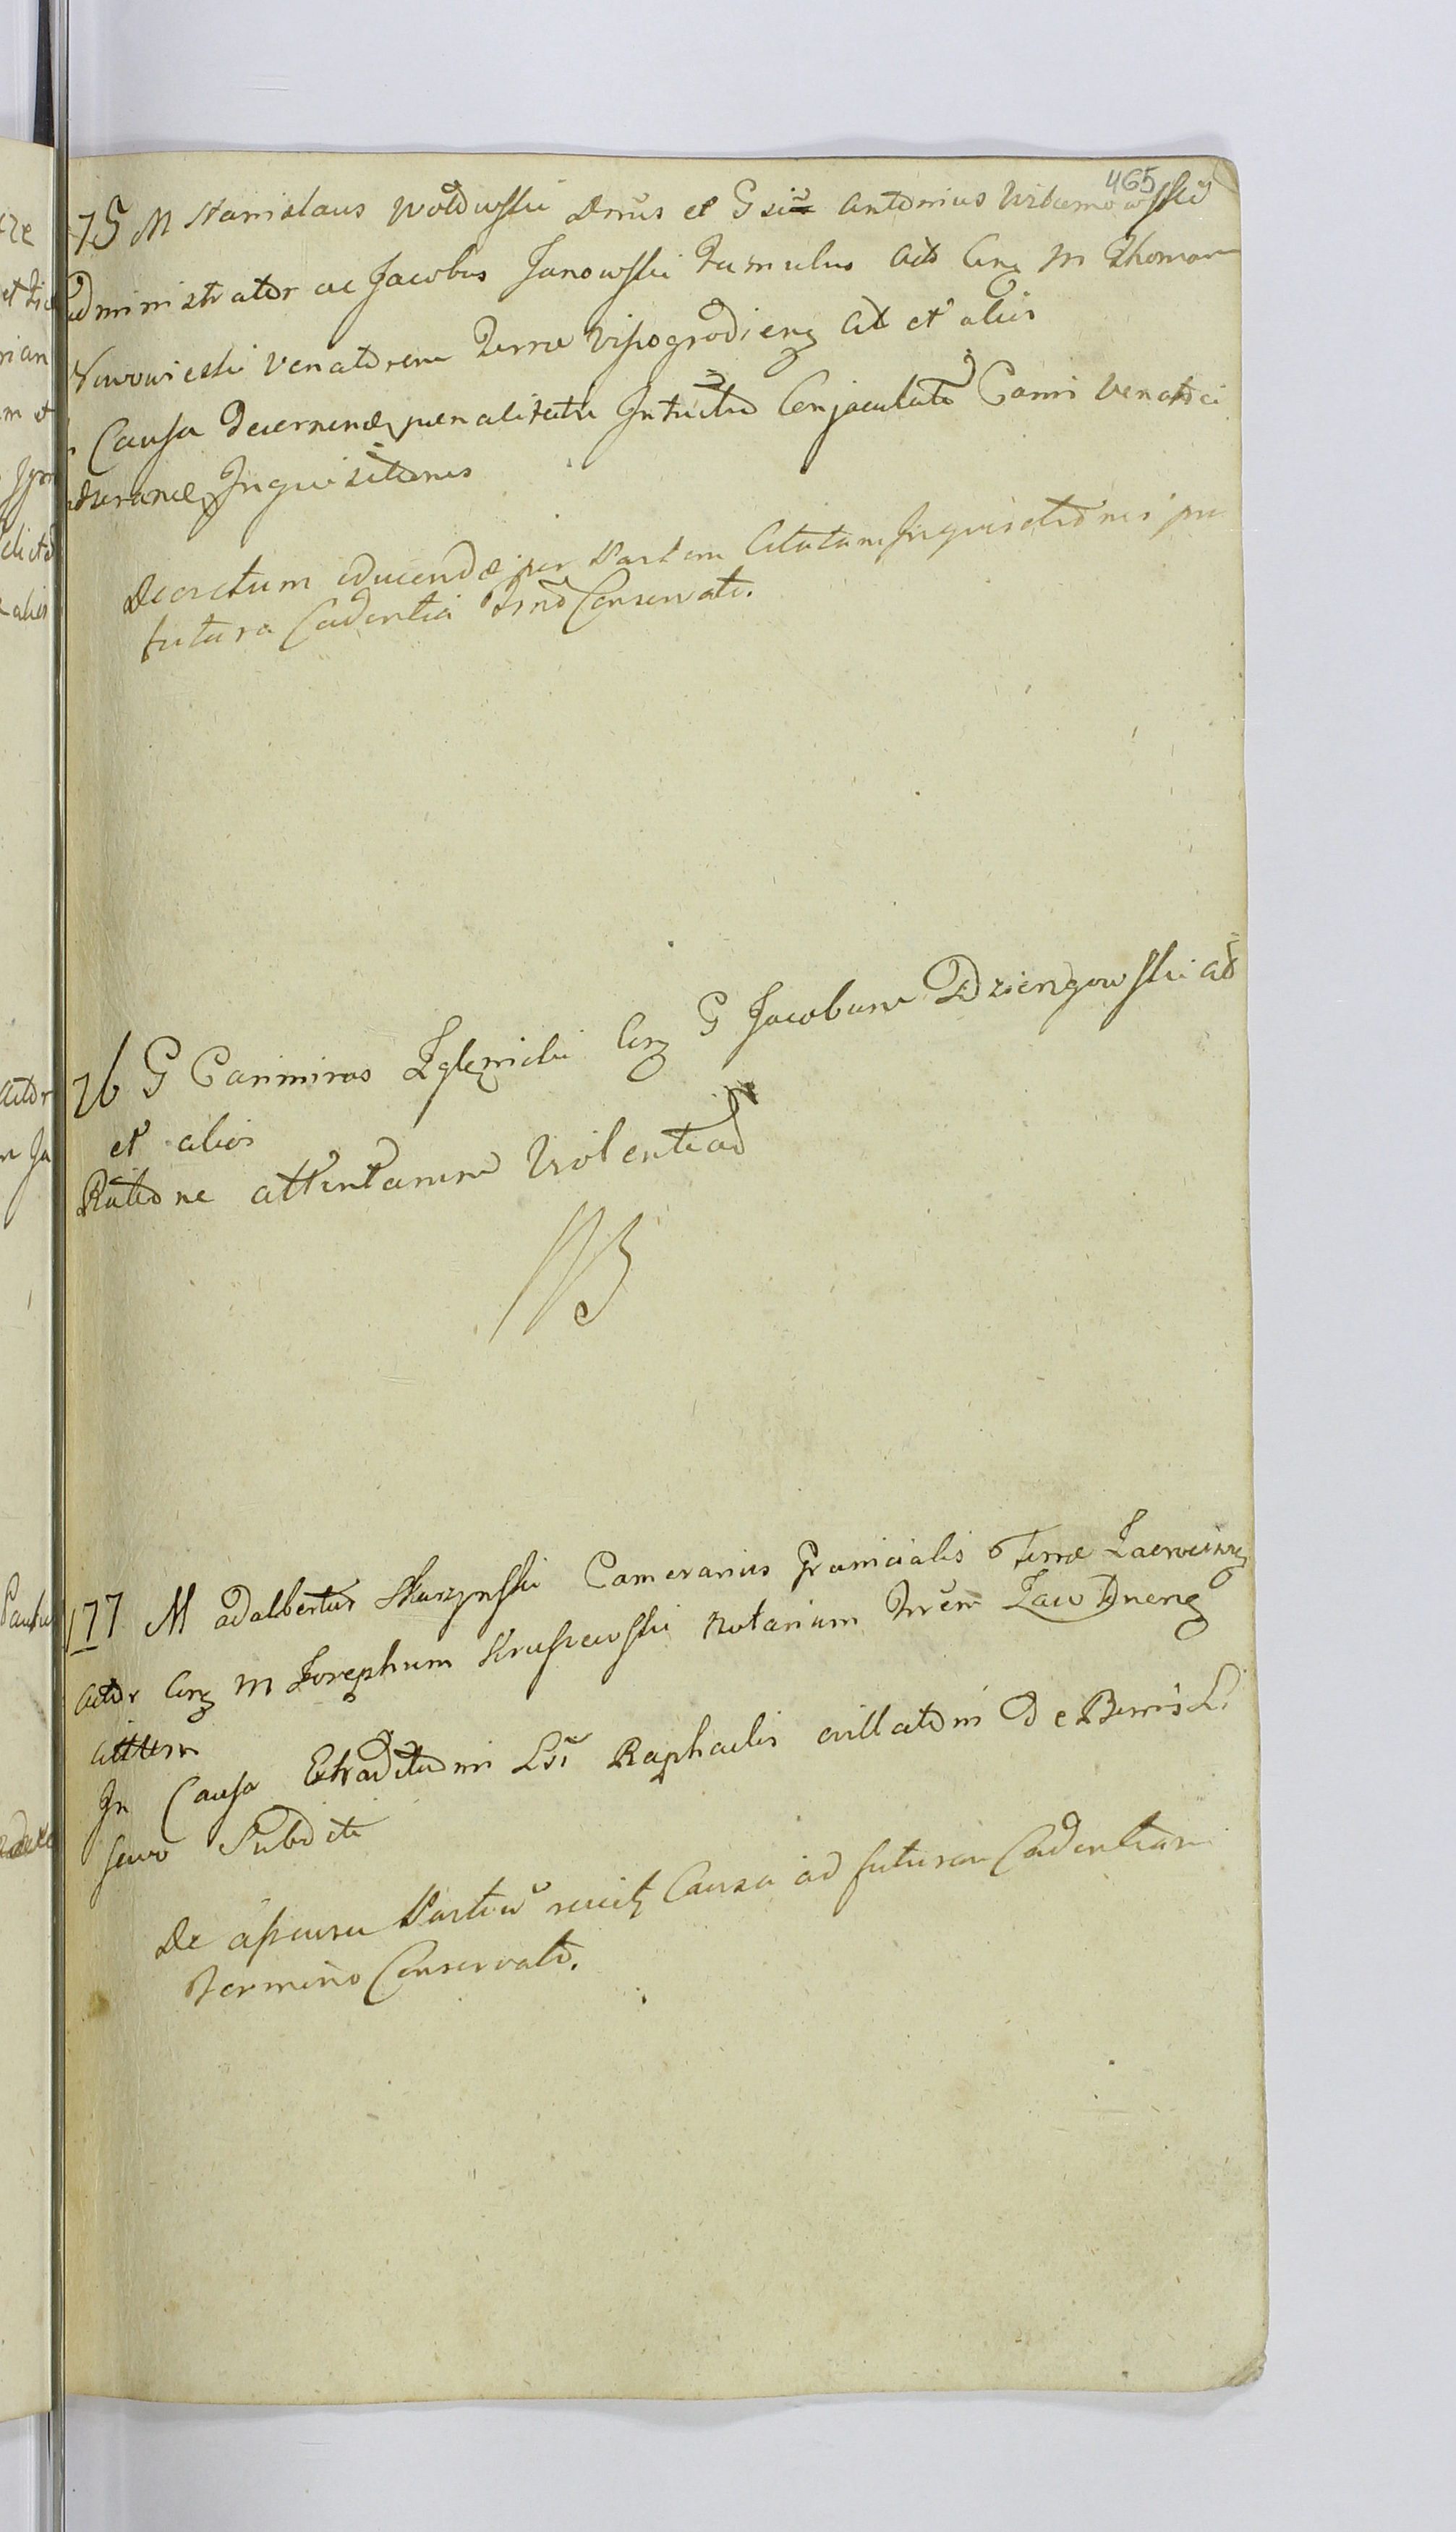 465
75 M Stanislaus Woldowski Dnus et Gsiu Antonius
administrator ac Jacobus Janowski famulus Act Crq M Thomam
Nowowieski Venatorem Terræ Vissogrodieng Ct et alios
Causa decernendæ pœnalitatis Intuitu Conjaculati Canis Venatici
Inquisitiones
Decretum educendæ per Partem Citatam Inquisitionis pro
futura Cadentia Trno Conservato.
76 G Casimirus Zglenicki Crq G Jacobum Dziengowski Ct
et alios
Ratione attentarum Violentiarum
177 M Adalbertus Skarzynski Camerarius Granicialis Terræ Zacroeinq
Actor Crq M Josephum Kruszewski Notarium Trrem
Cittum
In Causa Extraditionis Lsi Raphaelis de Bonis
suis Subditi
De assensu Partiu rejcit Causa ad futuram Cadentiam
Termino Conservato.